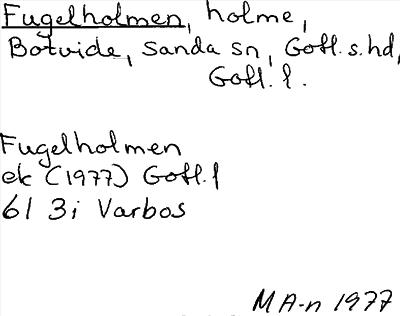 Fugelholmen, holme,
Botvide, Sanda sn, Gotl. s. hd,
Gotl. l.
Fugelholmen
ek (1977) Gotl. l
61 3i Varbos
MA-n 1977